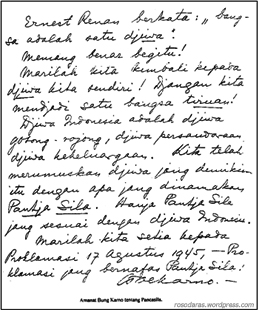 Ernest Renan berkata: „bang-
sa adalah satu djiwa".
Memang benar begitu!
Marilah kita kembali kepada
djiwa kita sendiri! Djangan kita
mendjadi satu bangsa tiruan!
Djiwa Indonesia adalah djiwa
gotong-rojong, djiwa persaudaraan,
djiwa kekeluargaan. Kita telah
merumuskan djiwa jang demikian
itu dengan apa jang dinamakan
Pantja Sila. Hanja Pantja Sila
jang sesuai dengan djiwa Indonesia.
Marilah kita setia kepada
Proklamasi 17 Agustus 1945, — Pro-
klamasi jang bernafas Pantja Sila!
Soekarno.—
Amanat Bung Karno tentang Pancasila.
rosodaras.wordpress.com